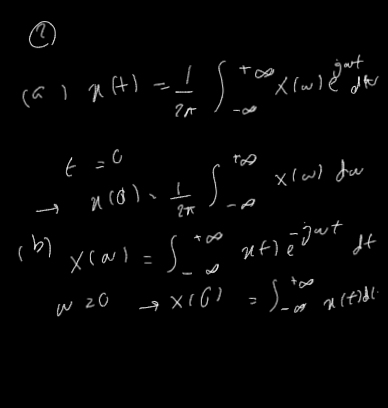 ②
(a) x(t) = 1/2π ∫_{-∞}^{+∞} X(ω) e^{jωt} dω
t = 0
→ x(0) = 1/2π ∫_{-∞}^{+∞} X(ω) dω
(b) X(ω) = ∫_{-∞}^{+∞} x(t) e^{-jωt} dt
ω = 0 → X(0) = ∫_{-∞}^{+∞} x(t) dt